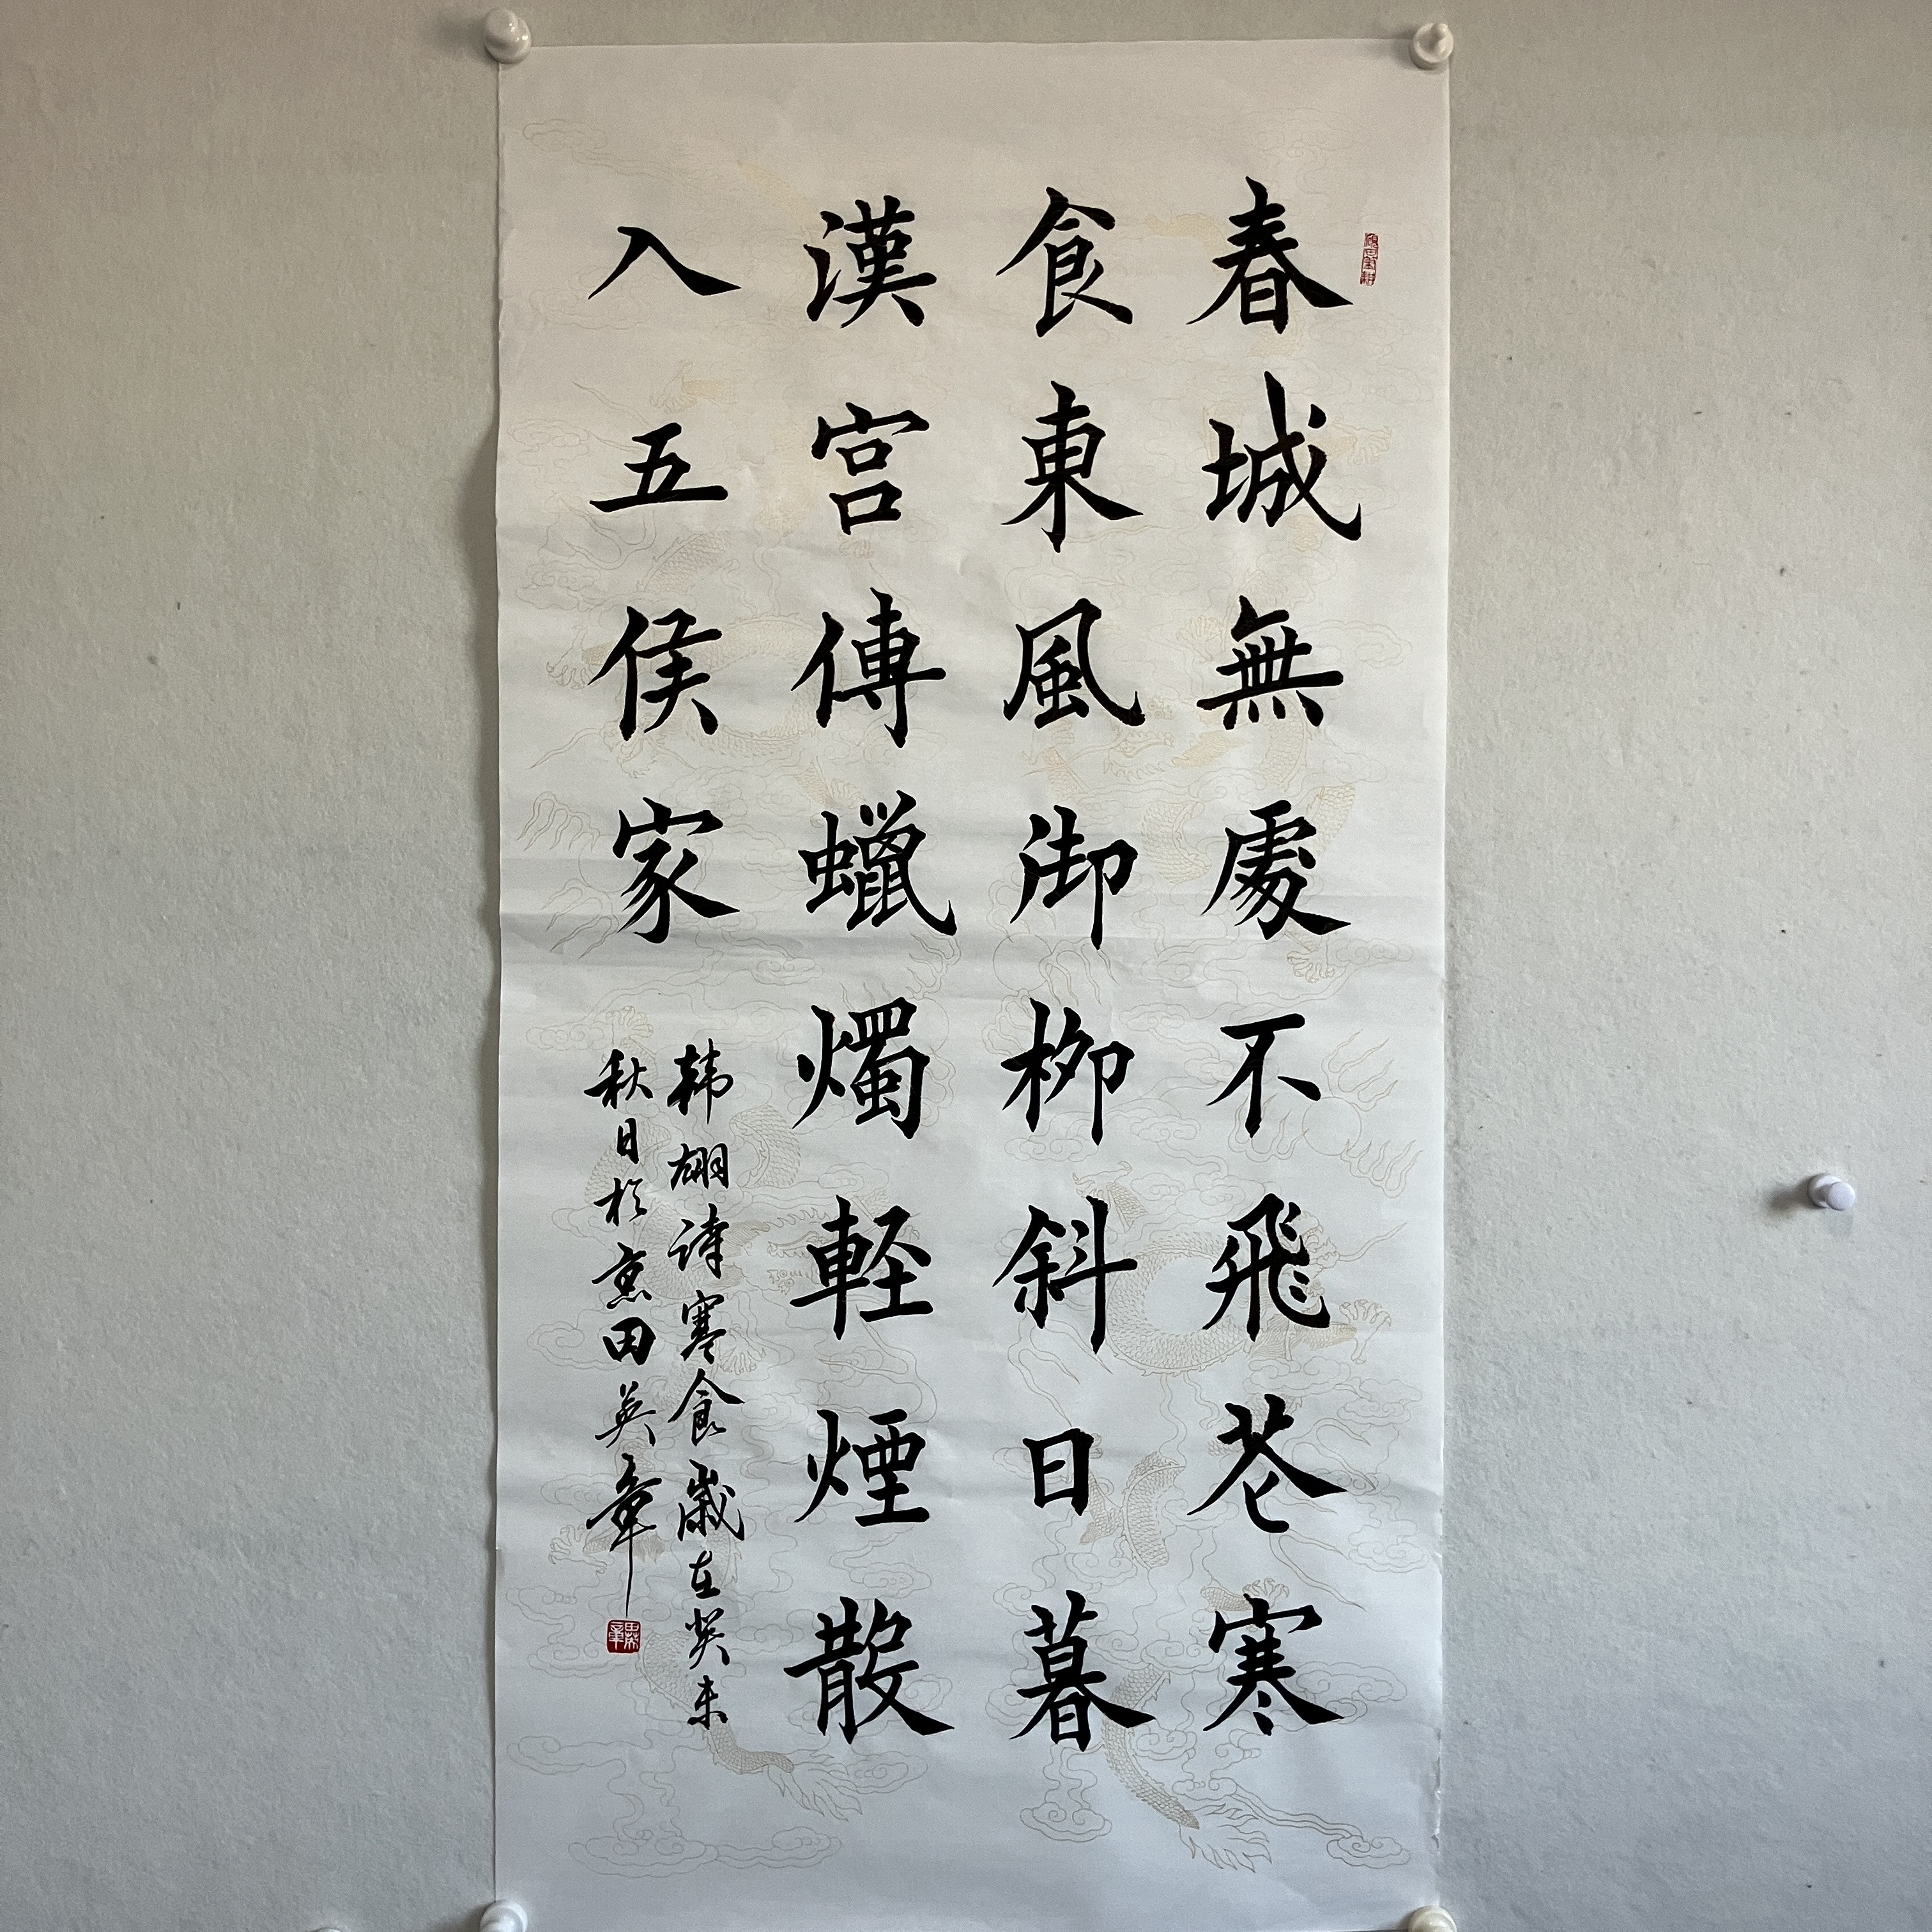 春城無處不飛花寒
食東風御柳斜日暮
漢宮傳蠟燭軽煙散
入五侯家
韩翃诗寒食歲在癸未
秋日於京田英章